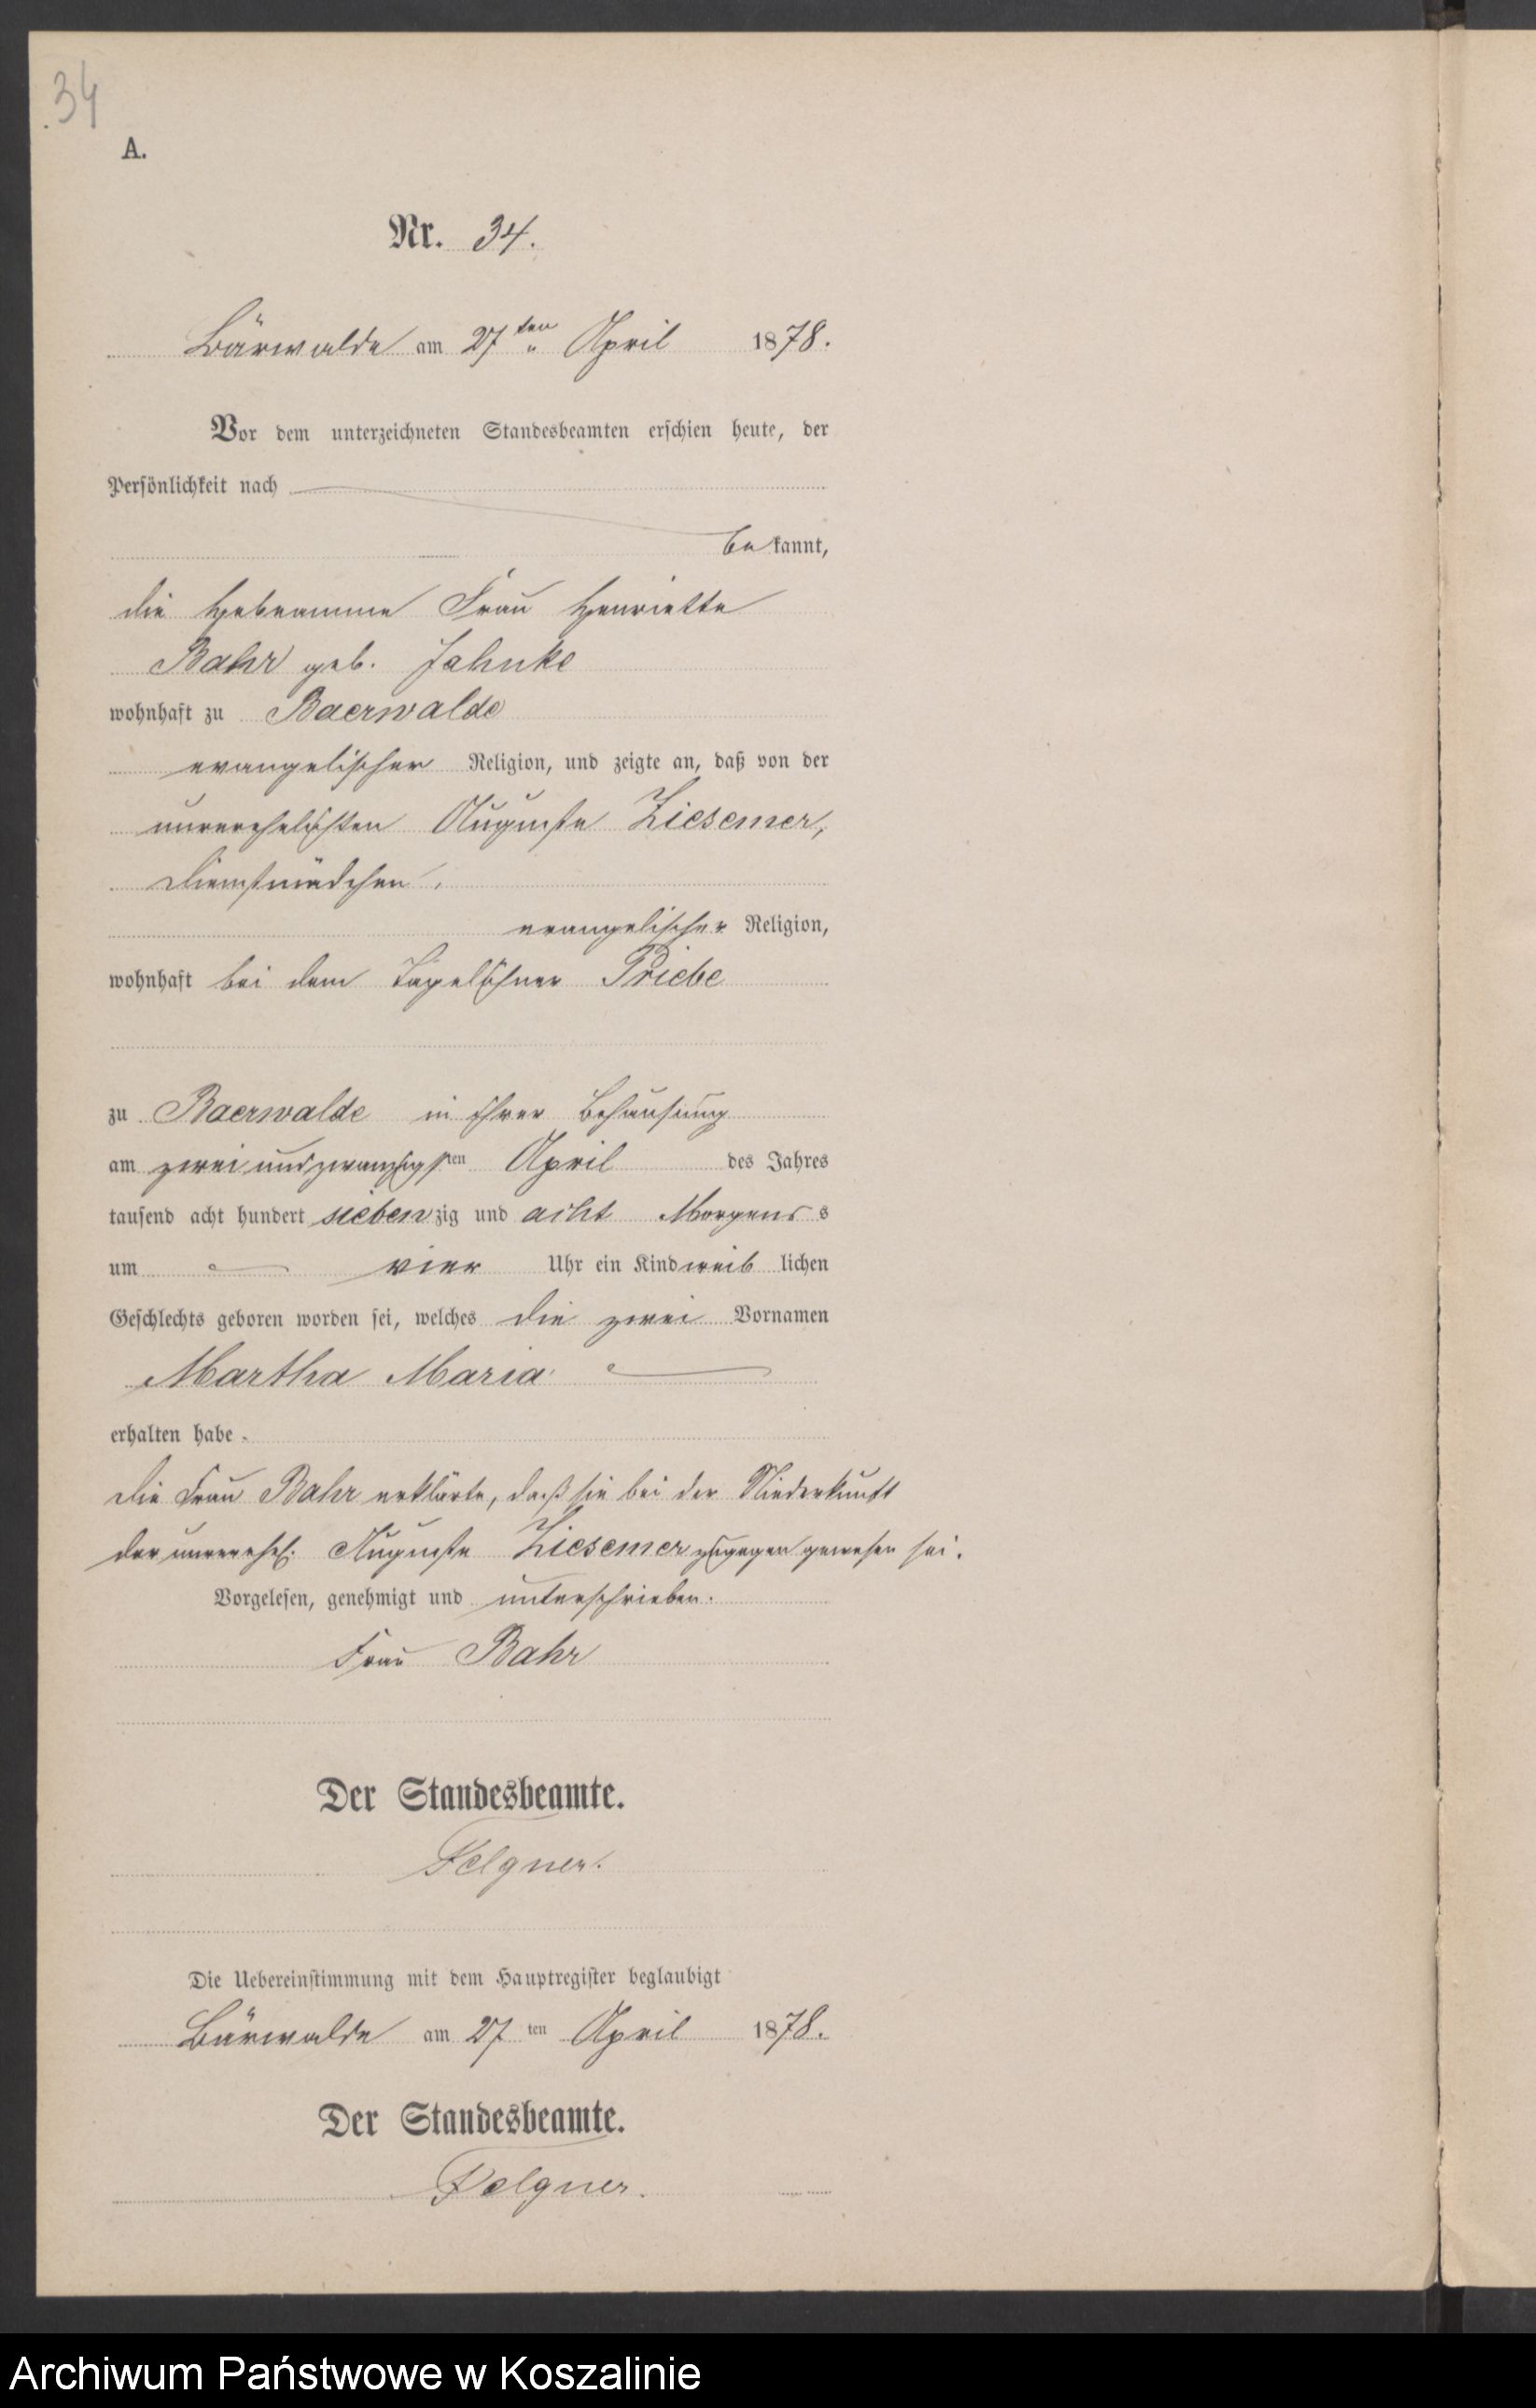 34
A.
Nr. 34.
Bärwalde am 27ten April 1878.
Vor dem unterzeichneten Standesbeamten erschien heute, der
Persönlichkeit nach
bekannt,
die Hebeamme Frau Henriette
Bahr geb. Jahnke
wohnhaft zu Baerwalde
evangelischer Religion, und zeigte an, daß von der
unverehelichten Auguste Ziesemer,
Dienstmädchen,
evangelischer Religion,
wohnhaft bei dem Tagelöhner Priebe
zu Baerwalde in Ihrer Behausung
am zwei und zwanzigsten April des Jahres
tausend acht hundert siebenzig und acht Morgens s
um vier Uhr ein Kind weiblichen
Geschlechts geboren worden sei, welches die zwei Vornamen
Martha Maria
erhalten habe.
Die Frau Bahr erklärte, daß sie bei der Niederkunft
der unverehel. Auguste Ziesemer zugegen gewesen sei.
Vorgelesen, genehmigt und unterschrieben.
Frau Bahr
Der Standesbeamte.
Felgner.
Die Uebereinstimmung mit dem Hauptregister beglaubigt
Bärwalde am 27ten April 1878.
Der Standesbeamte.
Felgner.
Archiwum Państwowe w Koszalinie